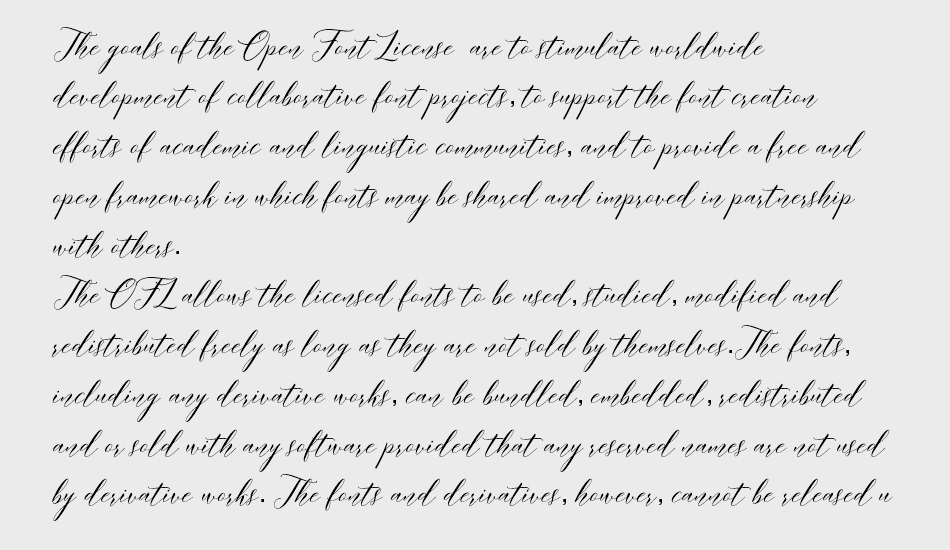 The goals of the Open Font License are to stimulate worldwide
development of collaborative font projects, to support the font creation
efforts of academic and linguistic communities, and to provide a free and
open framework in which fonts may be shared and improved in partnership
with others.
The OFL allows the licensed fonts to be used, studied, modified and
redistributed freely as long as they are not sold by themselves. The fonts,
including any derivative works, can be bundled, embedded, redistributed
and or sold with any software provided that any reserved names are not used
by derivative works. The fonts and derivatives, however, cannot be released u